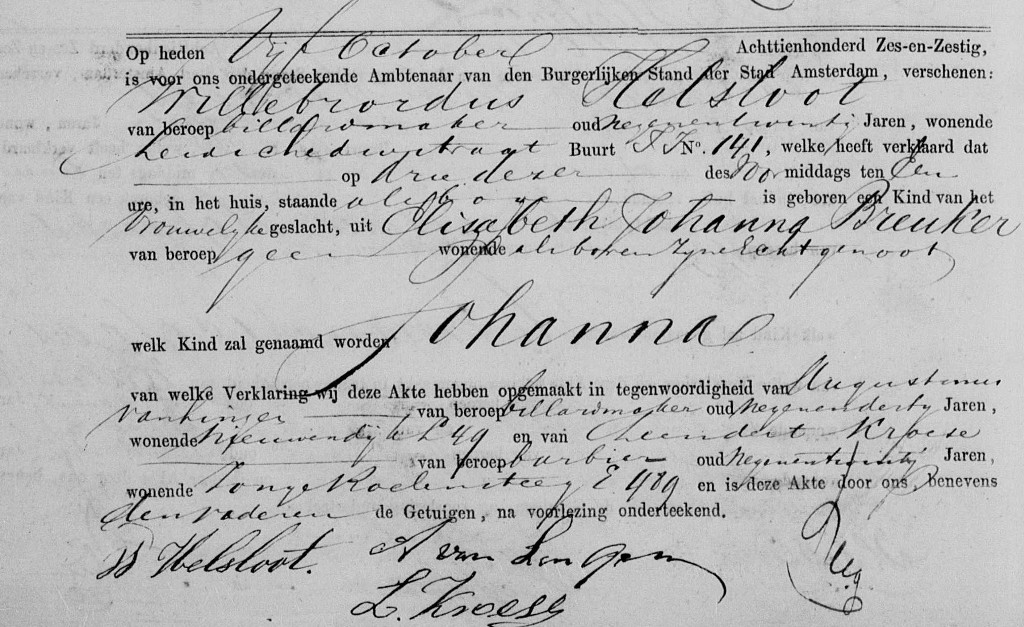 Op heden Vijf October Achttienhonderd Zes-en-Zestig,
is voor ons ondergeteekende Ambtenaar van den Burgerlijken Stand der Stad Amsterdam, verschenen:
Willebrordus Helsloot
van beroep billardmaker oud negenentwintig Jaren, wonende
Leidschedwstraat Buurt No. 141, welke heeft verklaard dat
op drie dezer des Voor middags ten Een
ure, in het huis, staande alsboven is geboren een Kind van het
Vrouwelyke geslacht, uit Elisabeth Johanna Breuker
van beroep geen wonende alsboven zyne Echtgenoot
welk Kind zal genaamd worden Johanna
van welke Verklaring wij deze Akte hebben opgemaakt in tegenwoordigheid van Augustinus
van beroep billardmaker oud negenendertig Jaren,
wonende Nieuwendijk L 49 en van Leendert Kroese
van beroep barbier oud negenentwintig Jaren,
wonende Jonge Roelensteeg E 489 en is deze Akte door ons, benevens
den vader en de Getuigen, na voorlezing onderteekend.
W Helsloot. A van
L. Kroese